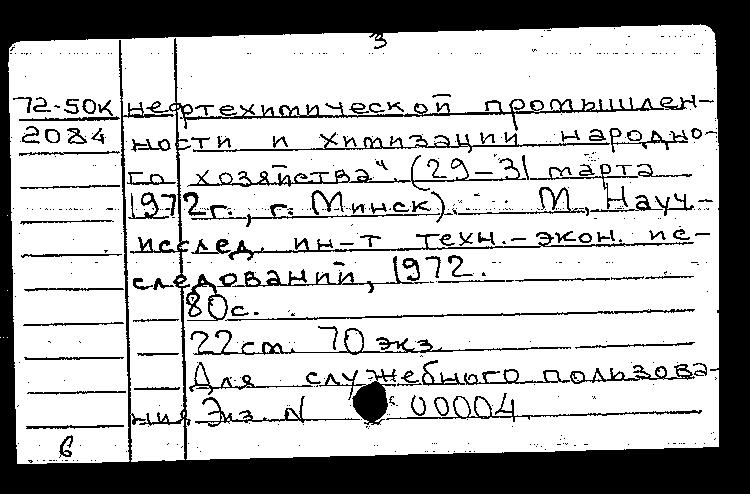 3
72-50к нефтехимической промышлен-
2084 ности и химизации народно-
го хозяйства". (29-31 марта
1972г., г. Минск). М, Науч.-
исслед. ин-т техн.-экон. ис-
следований, 1972.
80с.
22см. 70 экз.
Для служебного пользова-
ния Экз. N 00004
6